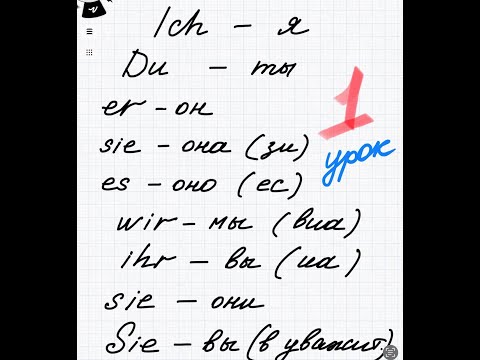 Ich – я
Du – ты
er – он
sie – она (зи)
es – оно (ес)
wir – мы (виа)
ihr – вы (иа)
sie – они
Sie – вы (в уважит.)
1
урок